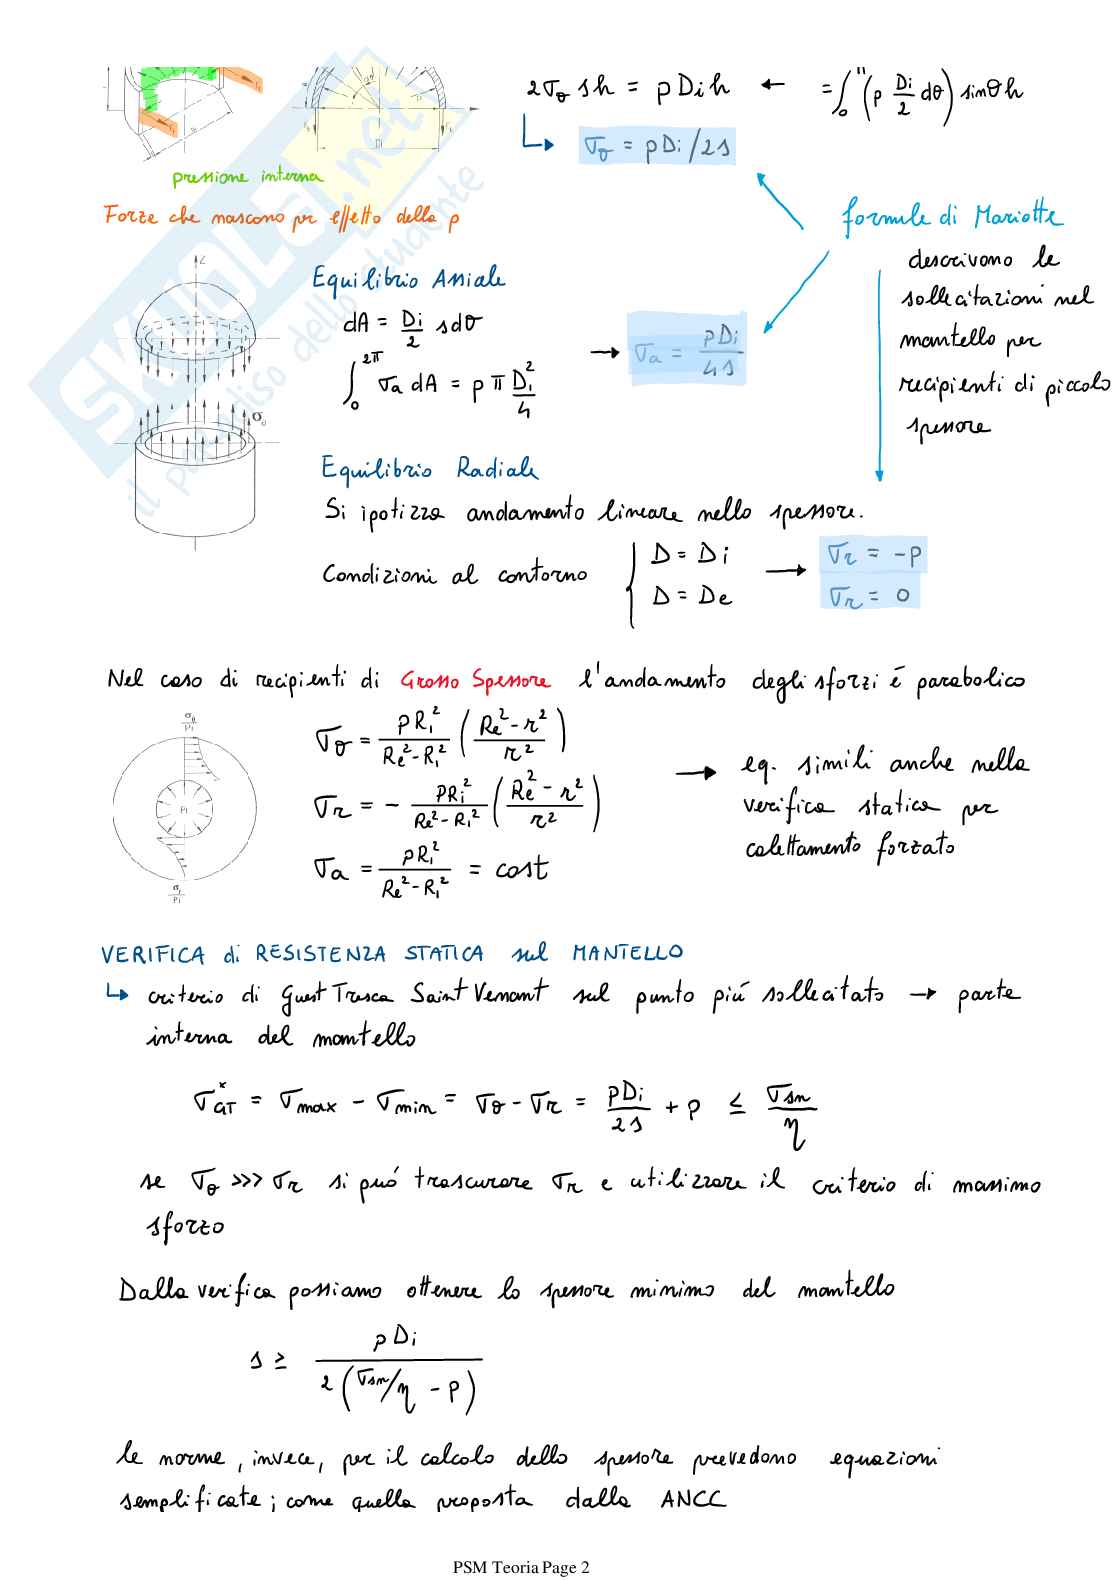 2σθ s h = p Di h ← = ∫₀^π (p Di/2 dθ) sinθ h
↳ σθ = p Di / 2s
pressione interna
Forze che nascono per effetto della p
formule di Mariotte
descrivono le
sollecitazioni nel
mantello per
recipienti di piccolo
spessore
Equilibrio Assiale
dA = Di/2 s dθ
∫₀^2π σa dA = p π Di²/4 → σa = p Di / 4s
Equilibrio Radiale
Si ipotizza andamento lineare nello spessore.
Condizioni al contorno { D = Di → σr = -p
D = De σr = 0
Nel caso di recipienti di Grosso Spessore l'andamento degli sforzi é parabolico
σθ = pRi²/(Re²-Ri²) ((Re²-r²)/r²)
σr = - pRi²/(Re²-Ri²) ((Re²-r²)/r²)
σa = pRi²/(Re²-Ri²) = cost
→ eq. simili anche nella
verifica statica per
calettamento forzato
VERIFICA di RESISTENZA STATICA sul MANTELLO
↳ criterio di Guest Tresca Saint Venant sul punto piú sollecitato → parte
interna del mantello
σ*GT = σmax - σmin = σθ - σr = pDi/2s + p ≤ σsn/η
se σθ >>> σr si puó trascurare σr e utilizzare il criterio di massimo
sforzo
Dalla verifica possiamo ottenere lo spessore minimo del mantello
s ≥ p Di / 2(σsn/η - p)
le norme, invece, per il calcolo dello spessore prevedono equazioni
semplificate; come quella proposta dalla ANCC
SKUOLA.net
il paradiso dello studente
PSM Teoria Page 2